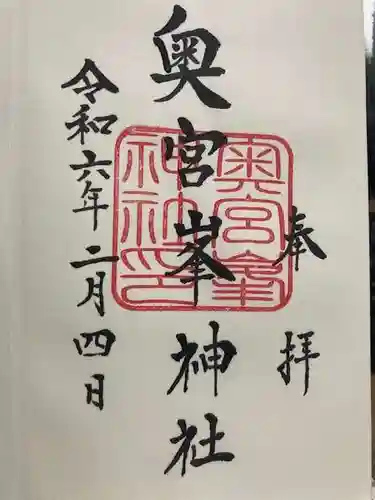 奉拝
奥宮峯神社
令和六年二月四日
奥宮峯
神社印